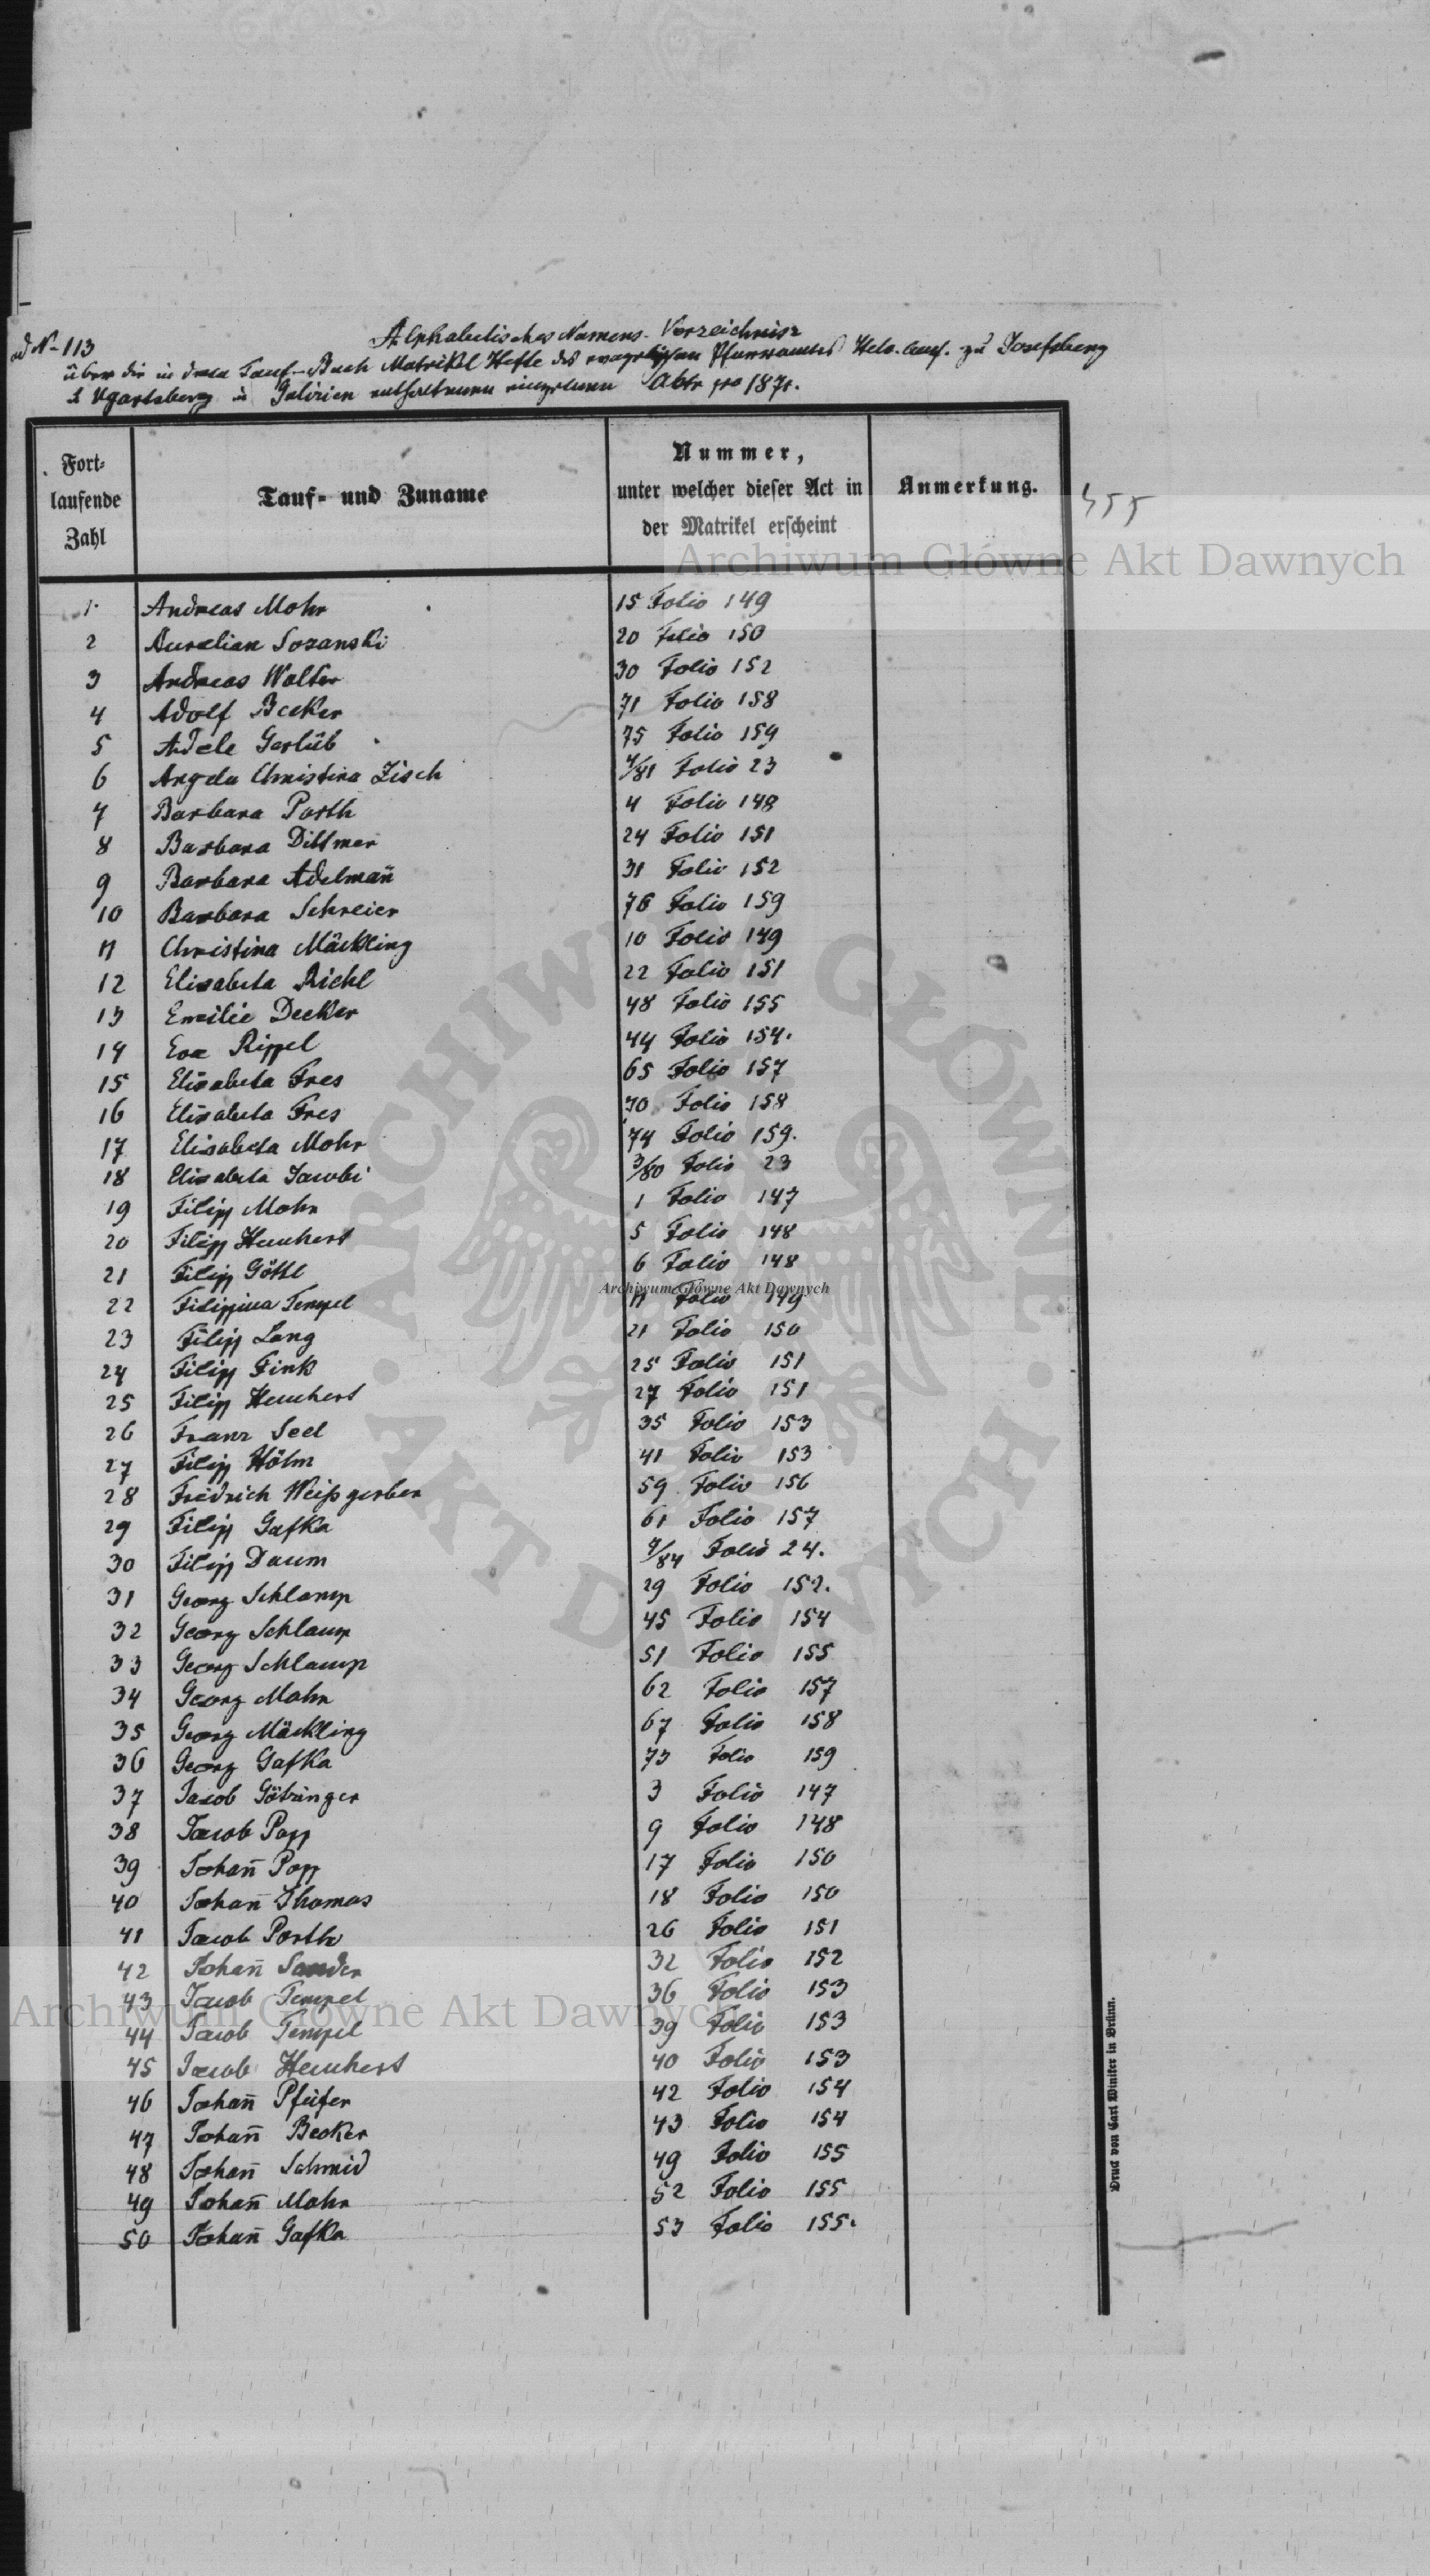 ad N- 113
Alphabetisches Namens-Verzeichniss
über die in dem Tauf-Buch Matrikel Hefte des evangelischen Pfarramtes Helv. Conf. zu Josefsberg
& Ugartsberg in Galizien enthaltenen einzelnen Akte pro 1871.
Fort-
laufende
Zahl
Tauf- und Zuname
Nummer,
unter welcher dieser Act in
der Matrikel erscheint
Anmerkung.
Archiwum Główne Akt Dawnych
1 Andreas Mohr 15 Folio 149
2 Aurelian Sozanski 20 Folio 150
3 Andreas Walter 30 Folio 152
4 Adolf Becker 71 Folio 158
5 Adele Gerlüb 75 Folio 159
6 Angela Christina Zisch 4/81 Folio 23
7 Barbara Porth 4 Folio 148
8 Barbara Dittmer 24 Folio 151
9 Barbara Adelmañ 31 Folio 152
10 Barbara Schreier 76 Folio 159
11 Christina Mäckling 10 Folio 149
12 Elisabeta Richl 22 Folio 151
13 Emilie Decker 48 Folio 155
14 Eva Rippel 44 Folio 154.
15 Elisabeta Fres 65 Folio 157
16 Elisabeta Fres 70 Folio 158
17 Elisabeta Mohr 74 Folio 159.
18 Elisabeta Jacobi 3/80 Folio 23
19 Filipp Mohr 1 Folio 147
20 Filipp Heuchert 5 Folio 148
21 Filipp Göttl 6 Folio 148
Archiwum Główne Akt Dawnych
22 Filippina Tempel 11 Folio 149
23 Filipp Lang 21 Folio 150
24 Filipp Fink 25 Folio 151
25 Filipp Heuchert 27 Folio 151
26 Franz Seel 35 Folio 153
27 Filipp Höhn 41 Folio 153
28 Fridrich Weißgerber 59 Folio 156
29 Filipp Gafka 61 Folio 157
30 Filipp Daum 7/84 Folio 24.
31 Georg Schlamp 29 Folio 152.
32 Georg Schlamp 45 Folio 154
33 Georg Schlamp 51 Folio 155
34 Georg Mohr 62 Folio 157
35 Georg Mäckling 67 Folio 158
36 Georg Gafka 73 Folio 159
37 Jacob Götzinger 3 Folio 147
38 Jacob Popp 9 Folio 148
39 Johañ Popp 17 Folio 150
40 Johañ Thomas 18 Folio 150
41 Jacob Porth 26 Folio 151
42 Johañ Sander 32 Folio 152
43 Jacob Tempel 36 Folio 153
Archiwum Główne Akt Dawnych
44 Jacob Tempel 39 Folio 153
45 Jacob Heuchert 40 Folio 153
46 Johañ Pfeifer 42 Folio 154
47 Johañ Becker 43 Folio 154
48 Johañ Schmid 49 Folio 155
49 Johañ Mohr 52 Folio 155
50 Johañ Gafka 53 Folio 155.
Druck von Carl Winiker in Brünn.
ARCHIWUM GŁÓWNE AKT DAWNYCH